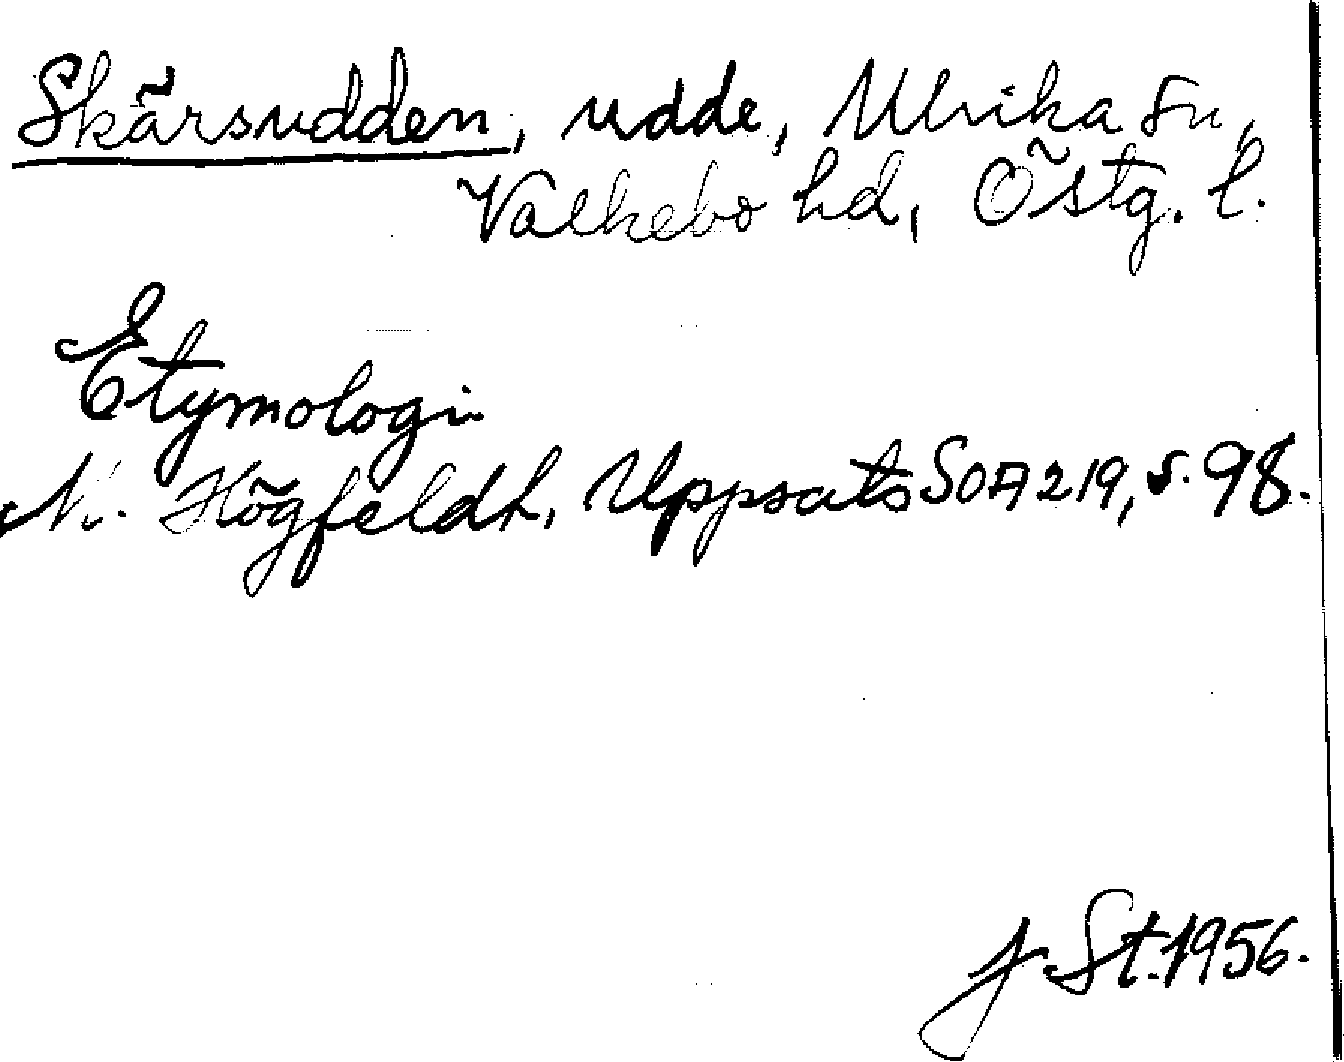 Skärsudden, udde, Ulrika sn,
Valkebo hd, Östg. l.
Etymologi
N. Högfeldh, Uppsats SOA 219, s. 98.
J St. 1956.